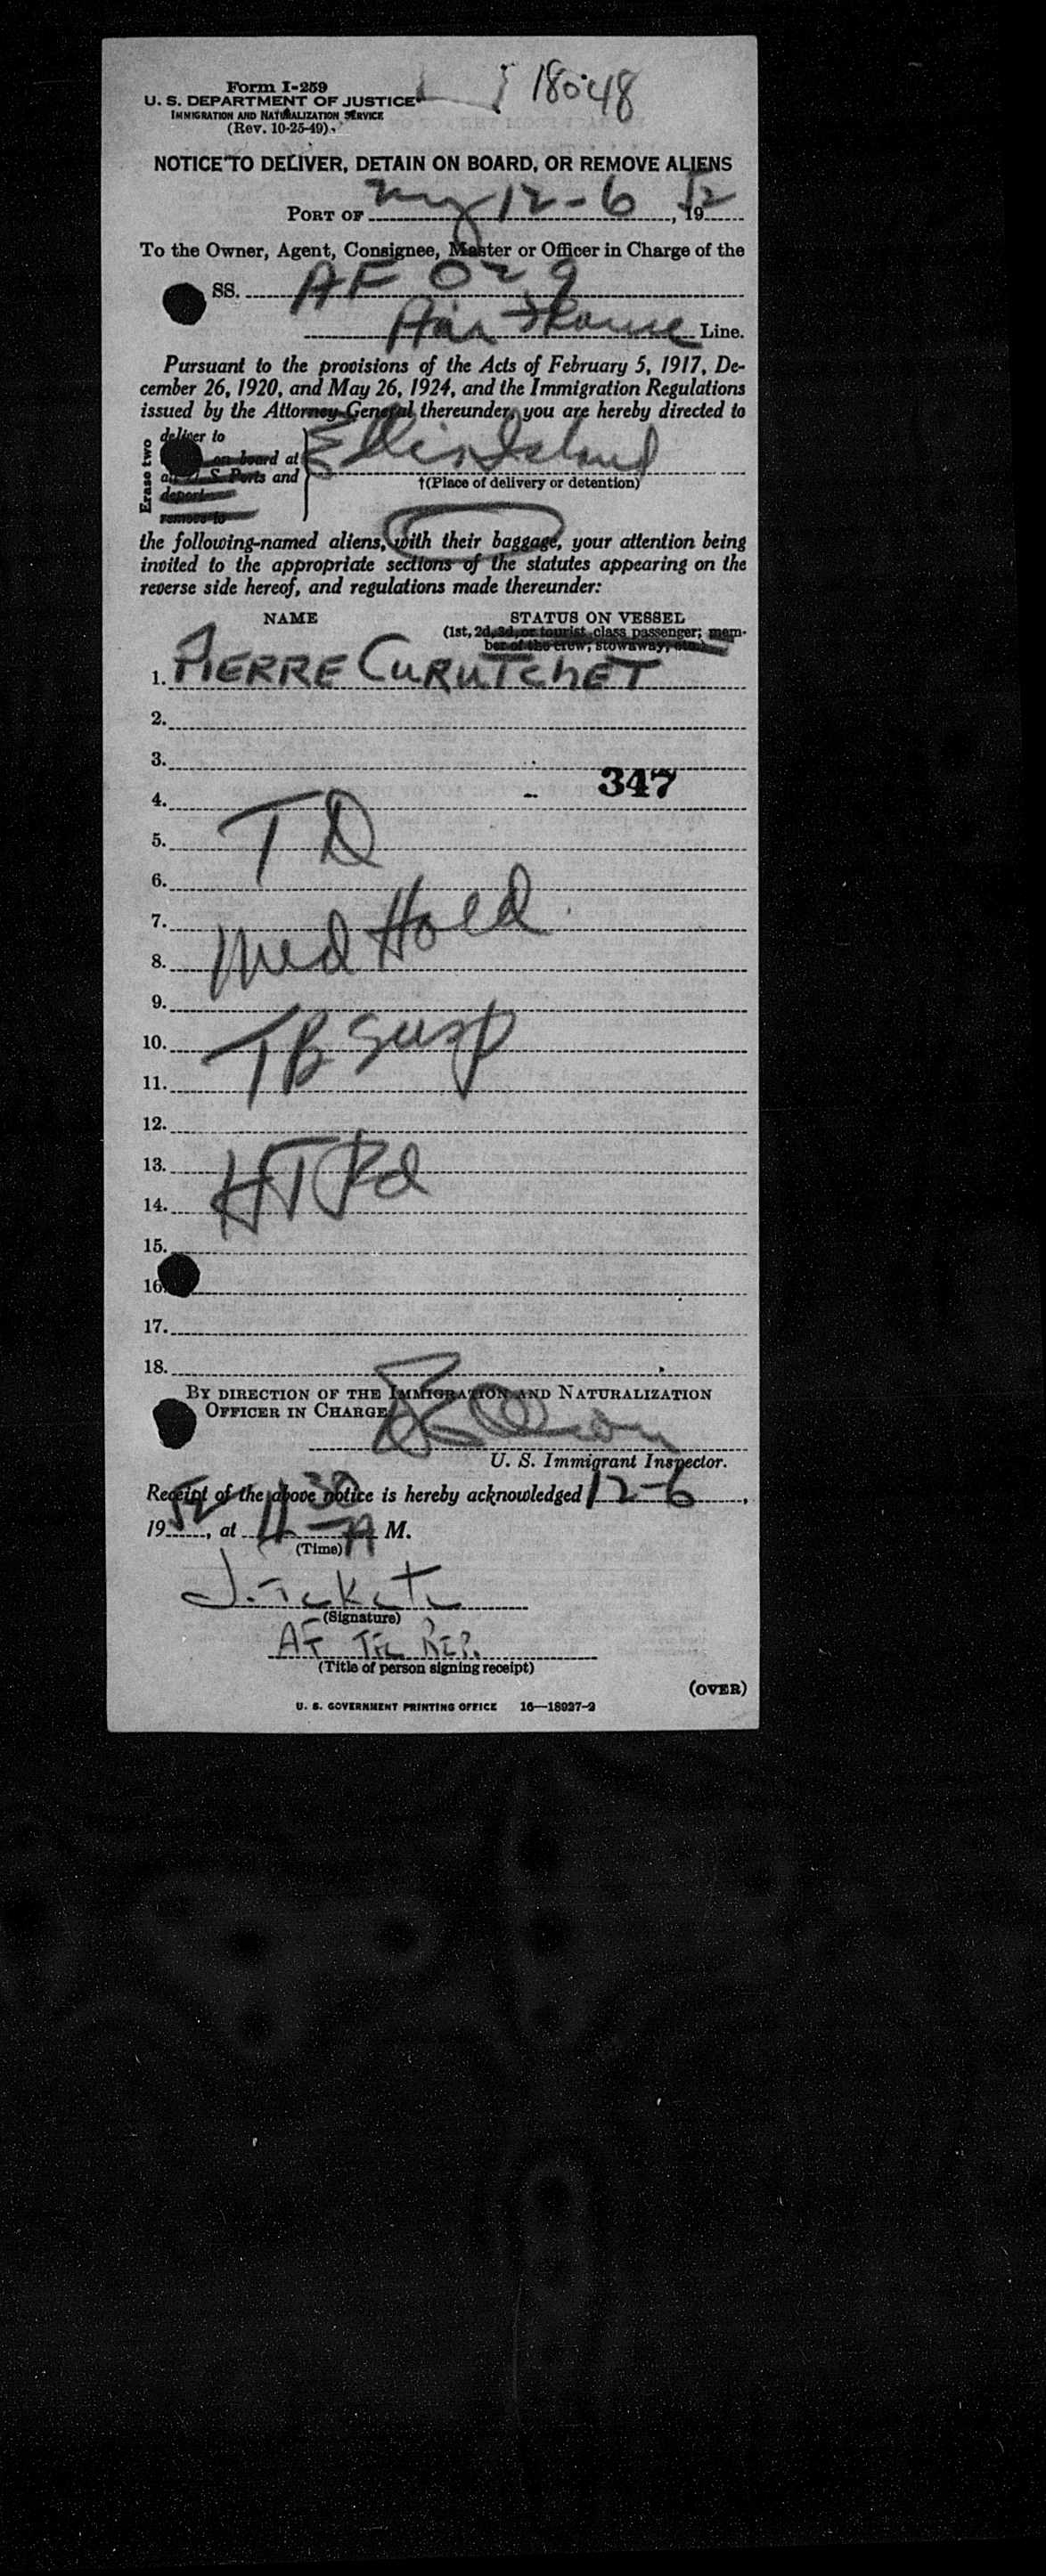 Form I-259
U. S. DEPARTMENT OF JUSTICE
IMMIGRATION AND NATURALIZATION SERVICE
(Rev. 10-25-49)
18048
NOTICE TO DELIVER, DETAIN ON BOARD, OR REMOVE ALIENS
PORT OF NY 12-6, 1952
To the Owner, Agent, Consignee, Master or Officer in Charge of the
SS. AF 029
Air France Line.
Pursuant to the provisions of the Acts of February 5, 1917, De-
cember 26, 1920, and May 26, 1924, and the Immigration Regulations
issued by the Attorney General thereunder, you are hereby directed to
Erase two
deliver to
on board at
all U. S. Ports and
deport
remove to
Ellis Island
†(Place of delivery or detention)
the following-named aliens, with their baggage, your attention being
invited to the appropriate sections of the statutes appearing on the
reverse side hereof, and regulations made thereunder:
NAME STATUS ON VESSEL
(1st, 2d, 3d, or tourist class passenger; mem-
ber of the crew; stowaway, etc.)
1. PIERRE CURUTCHET
2.
3.
347
4.
5. TD
6.
7.
8. Med Hold
9.
10.
11. TB susp
12.
13.
14. HT Pd
15.
16.
17.
18.
BY DIRECTION OF THE IMMIGRATION AND NATURALIZATION
OFFICER IN CHARGE
U. S. Immigrant Inspector.
Receipt of the above notice is hereby acknowledged 12-6,
1952, at 11 30 A M.
(Time)
(Signature)
AF TFC REP.
(Title of person signing receipt)
(OVER)
U. S. GOVERNMENT PRINTING OFFICE 16—18927-2